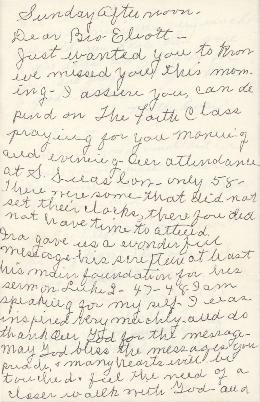 Sunday Afternoon.
Dear Bro Elliott -
Just wanted you to know
we missed you, this morn
ing - I assure you, can de
pend on The Faith Class
praying for you morning
and evening - Our attendance
at S. S. was low - only 58 -
There were some that did not
set their clocks, there fore did
not have time to attend.
Ira gave us a wonderful
message - his scripture at least
his main foundation for his
sermon Luke 9 - 47 - 48 I am
speaking for my self - I was
inspired very much, and do
thank Our God for the message -
May God bless the messages you
, & many hearts will be
touched & feel the need of a
closer walk with God - and